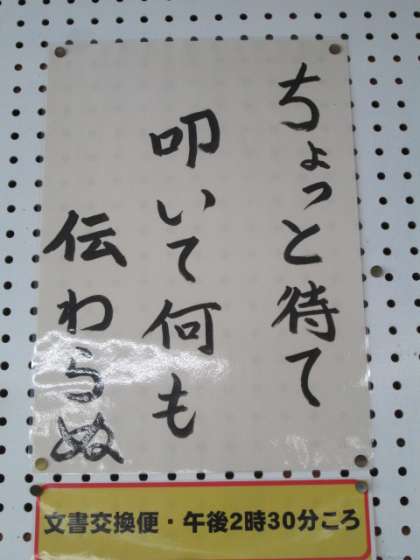 ちょっと待て
叩いて何も
伝わらぬ
文書交換便・午後2時30分ころ